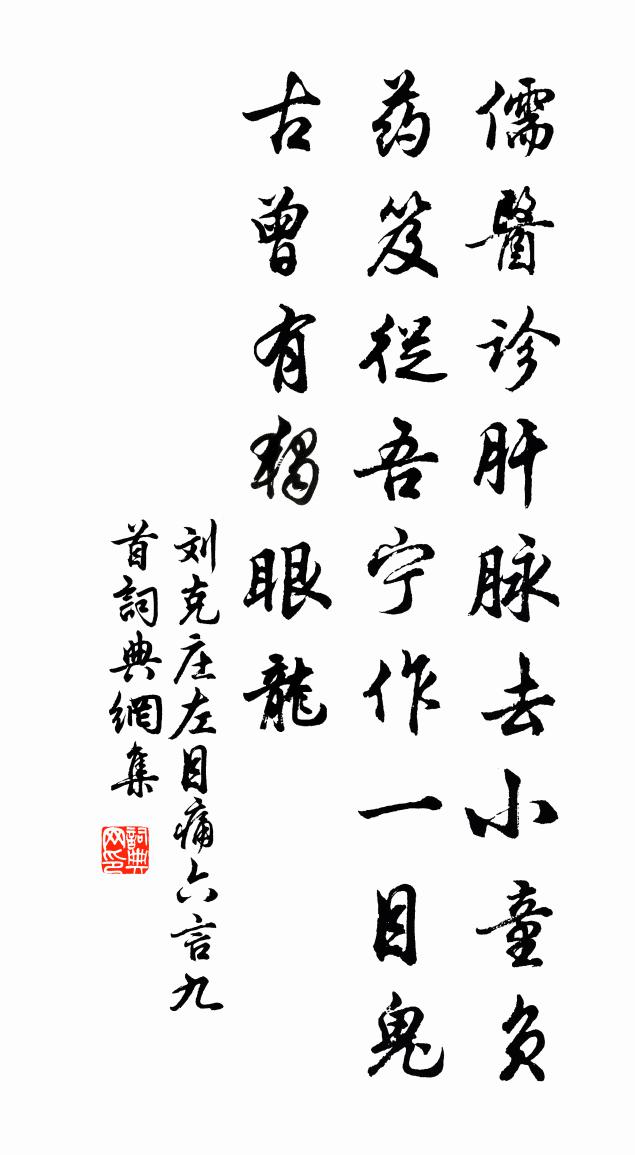 儒醫诊肝脉去小童负
药笈從吾宁作一目鬼
古曾有獨眼龍
刘克庄左目痛六言九
首詞典網集
詞典網印